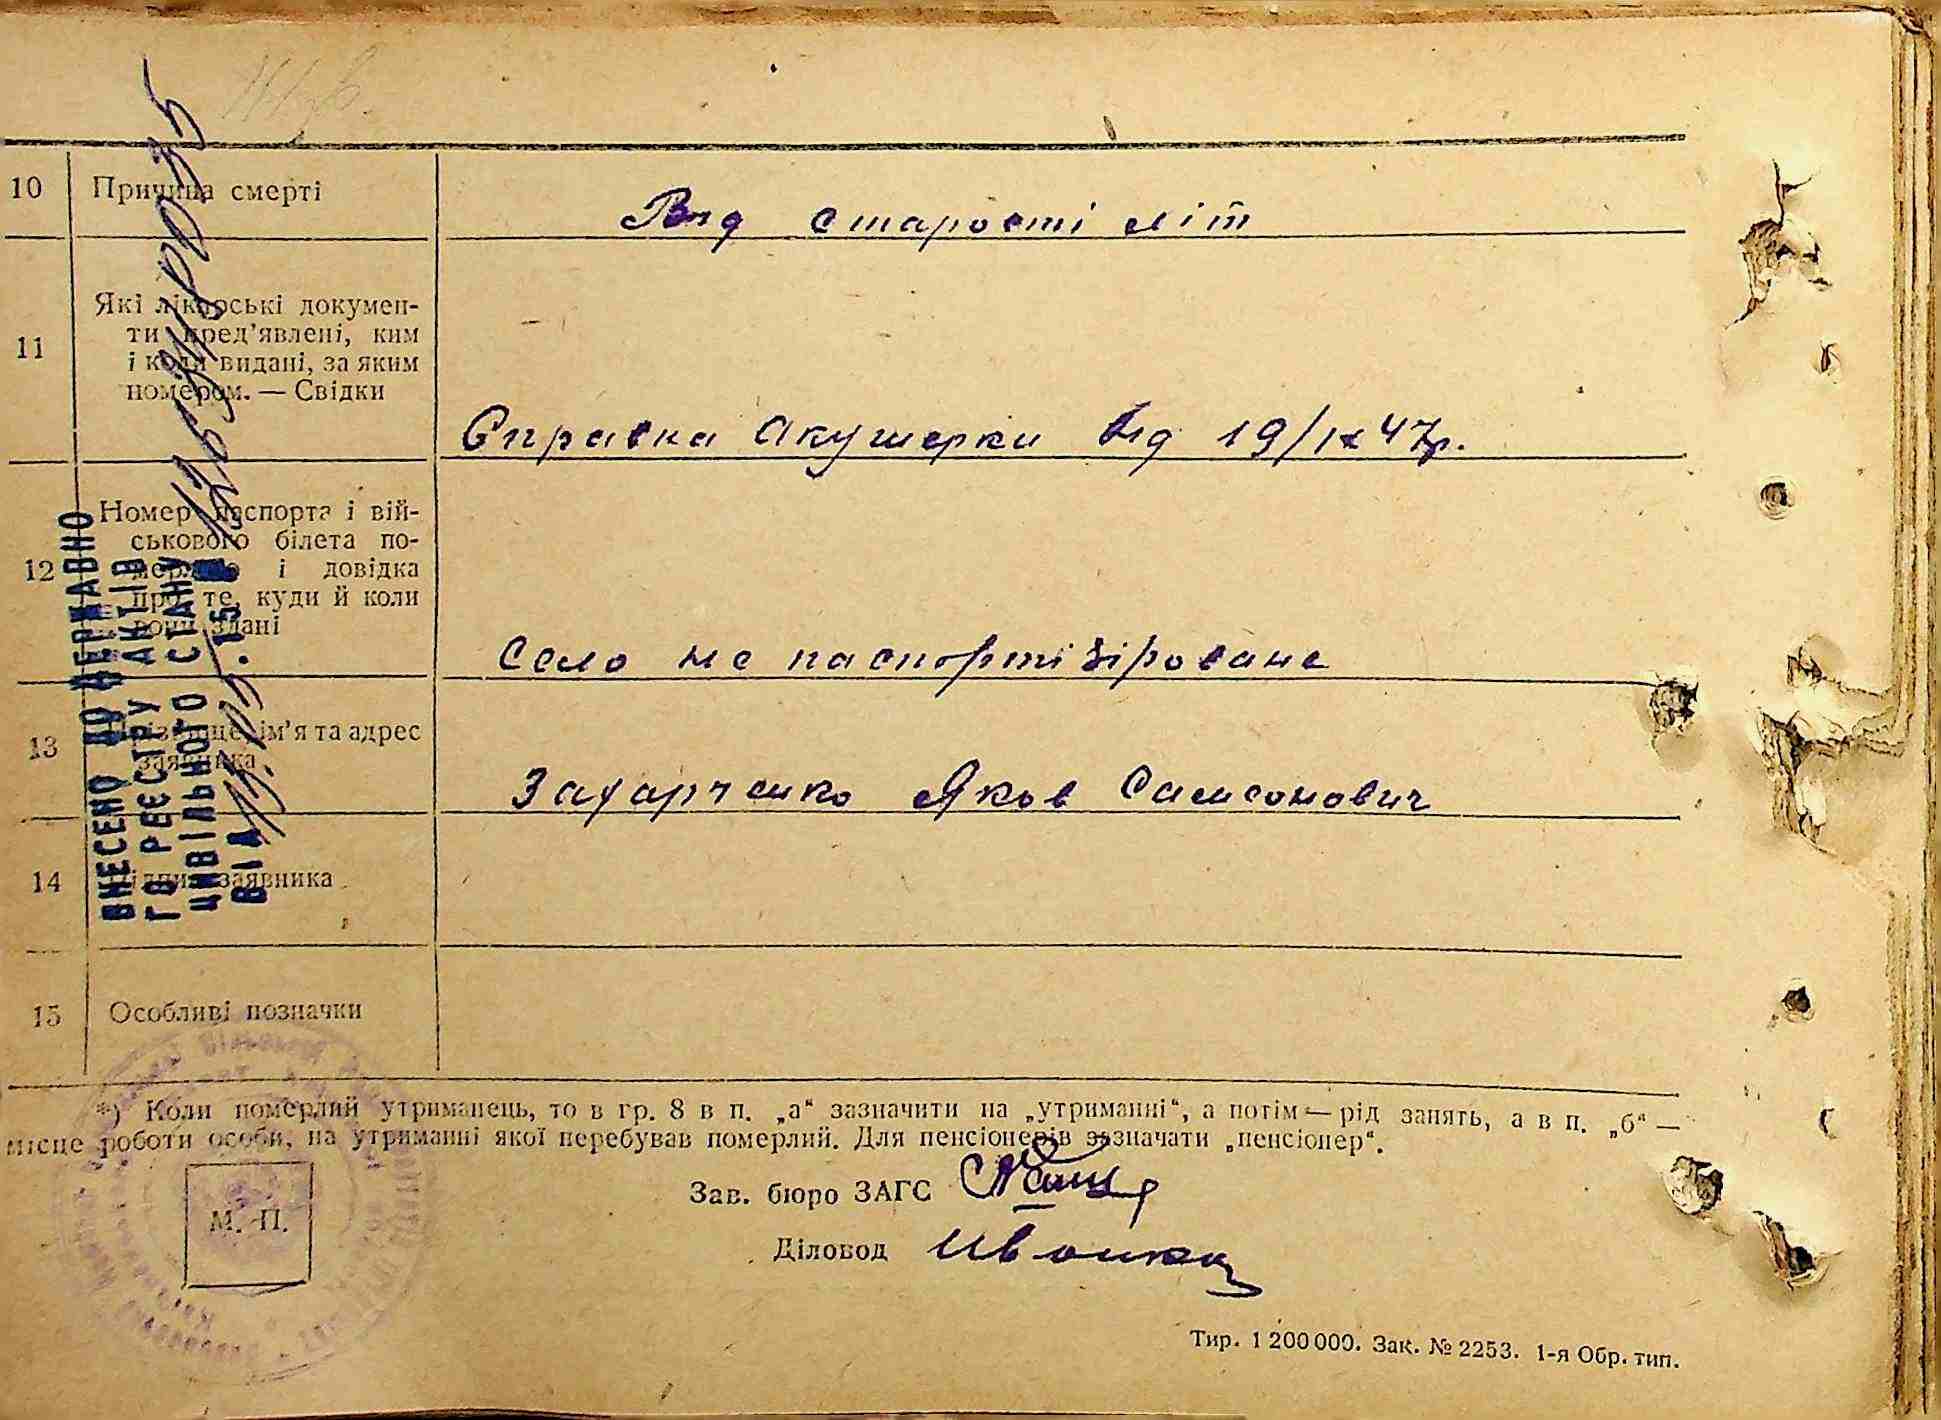 10 Причина смерті
Від старості літ
11 Які лікарські докумен-
ти пред’явлені, ким
і коли видані, за яким
номером. — Свідки
Справка акушерки від 19/ІХ 47р.
12 Номер паспорта і вій-
ськового білета по-
мерлого і довідка
про те, куди й коли
вони здані
Село не паспортізіроване
13 Прізвище, ім’я та адрес
заявника
Захарченко Яков Самсонович
14 Підпис заявника
15 Особливі позначки
ВНЕСЕНО ДО ДЕРЖАВНО
ГО РЕЄСТРУ АКТІВ
ЦИВІЛЬНОГО СТАНУ
ВІД
*) Коли померлий утриманець, то в гр. 8 в п. „а“ зазначити на „утриманні“, а потім — рід занять, а в п. „б“ —
місце роботи особи, на утриманні якої перебував померлий. Для пенсіонерів зазначати „пенсіонер“.
Зав. бюро ЗАГС
М. П.
Діловод
Тир. 1 200 000. Зак. № 2253. 1-я Обр. тип.